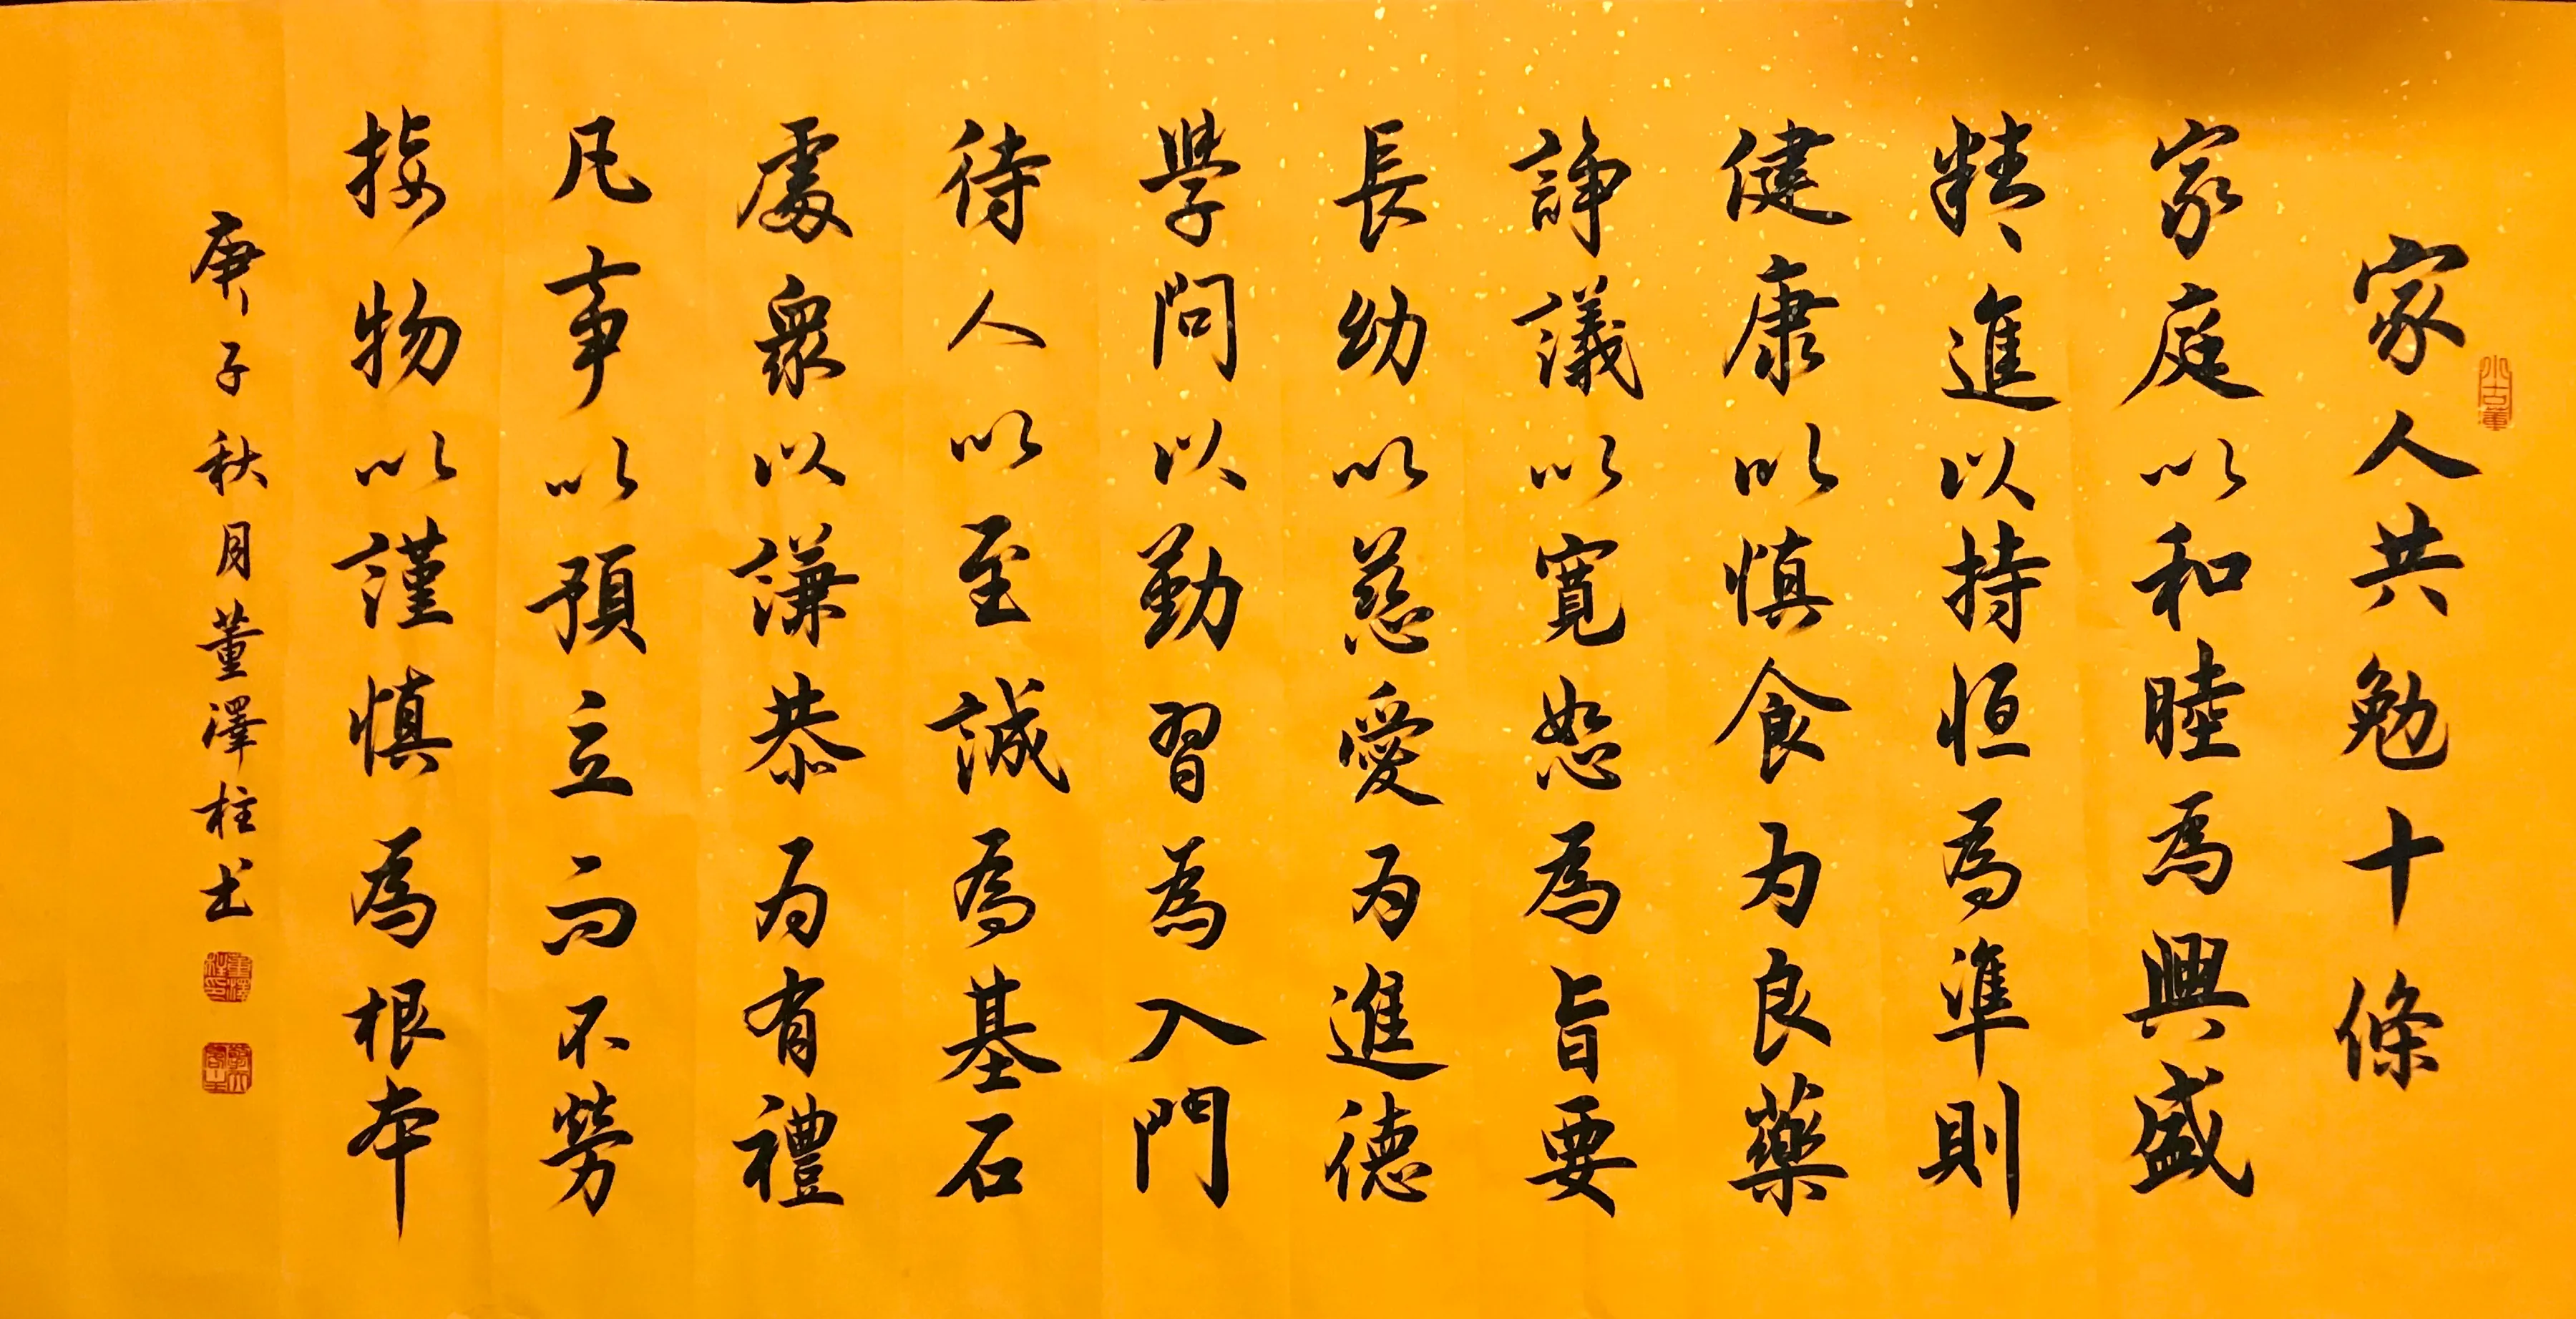 家人共勉十條
家庭以和睦為興盛
精進以持恒為準則
健康以慎食为良藥
諍議以寬恕為旨要
長幼以慈愛为進德
學問以勤習為入門
待人以至誠為基石
處衆以謙恭为有禮
凡事以預立而不勞
接物以謹慎為根本
庚子秋月董澤柱书